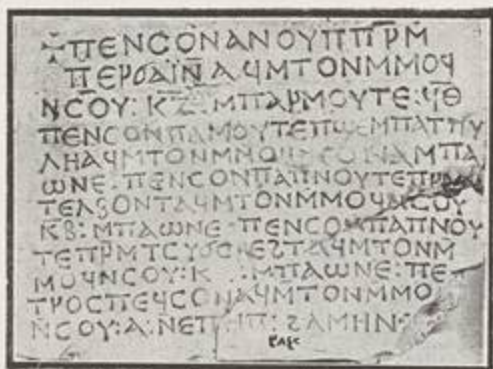 ☩ⲠⲈⲚⲤⲞⲚⲀⲚⲞⲨⲠⲠⲢⲘ
ⲠⲈⲢϬⲀⲒ̈Ⲛ̅ⲀϤⲘⲦⲞⲚⲘⲘⲞϤ
ⲚⲤⲞⲨ:ⲔⲌ̅:ⲘⲠⲀⲢⲘⲞⲨⲦⲈ:ϤⲐ̅
ⲠⲈⲚⲤⲞⲚⲠⲀⲘⲞⲨⲦⲈⲠϢⲈⲘⲠⲀⲦⲠⲨ
ⲖⲎⲀϤⲘⲦⲞⲚⲘⲘⲞϤ ⲘⲠⲀ
ⲰⲚⲈ·ⲠⲈⲚⲤⲞⲚⲠⲀⲠⲚⲞⲨⲦⲈⲠⲢⲘ
ⲦⲈⲖⲂⲞⲚⲦⲀϤⲘⲦⲞⲚⲘⲘⲞϤⲚⲤⲞⲨ
ⲔⲂ:ⲘⲠⲀⲰⲚⲈ·ⲠⲈⲚⲤⲞⲚⲠⲀⲠⲚⲞⲨ
ⲦⲈⲠⲢⲘ ⲀϤⲘⲦⲞⲚⲘ
ⲘⲞϤⲚⲤⲞⲨ:Ⲕ :ⲘⲠⲀⲰⲚⲈ:ⲠⲈ
ⲦⲢⲞⲤⲠⲈϤⲤⲞⲚⲀϤⲘⲦⲞⲚⲘⲘⲞ
ⲚⲤⲞⲨ:Ⲁ:ⲚⲈⲠⲎⲠ:ϨⲀⲘⲎⲚ